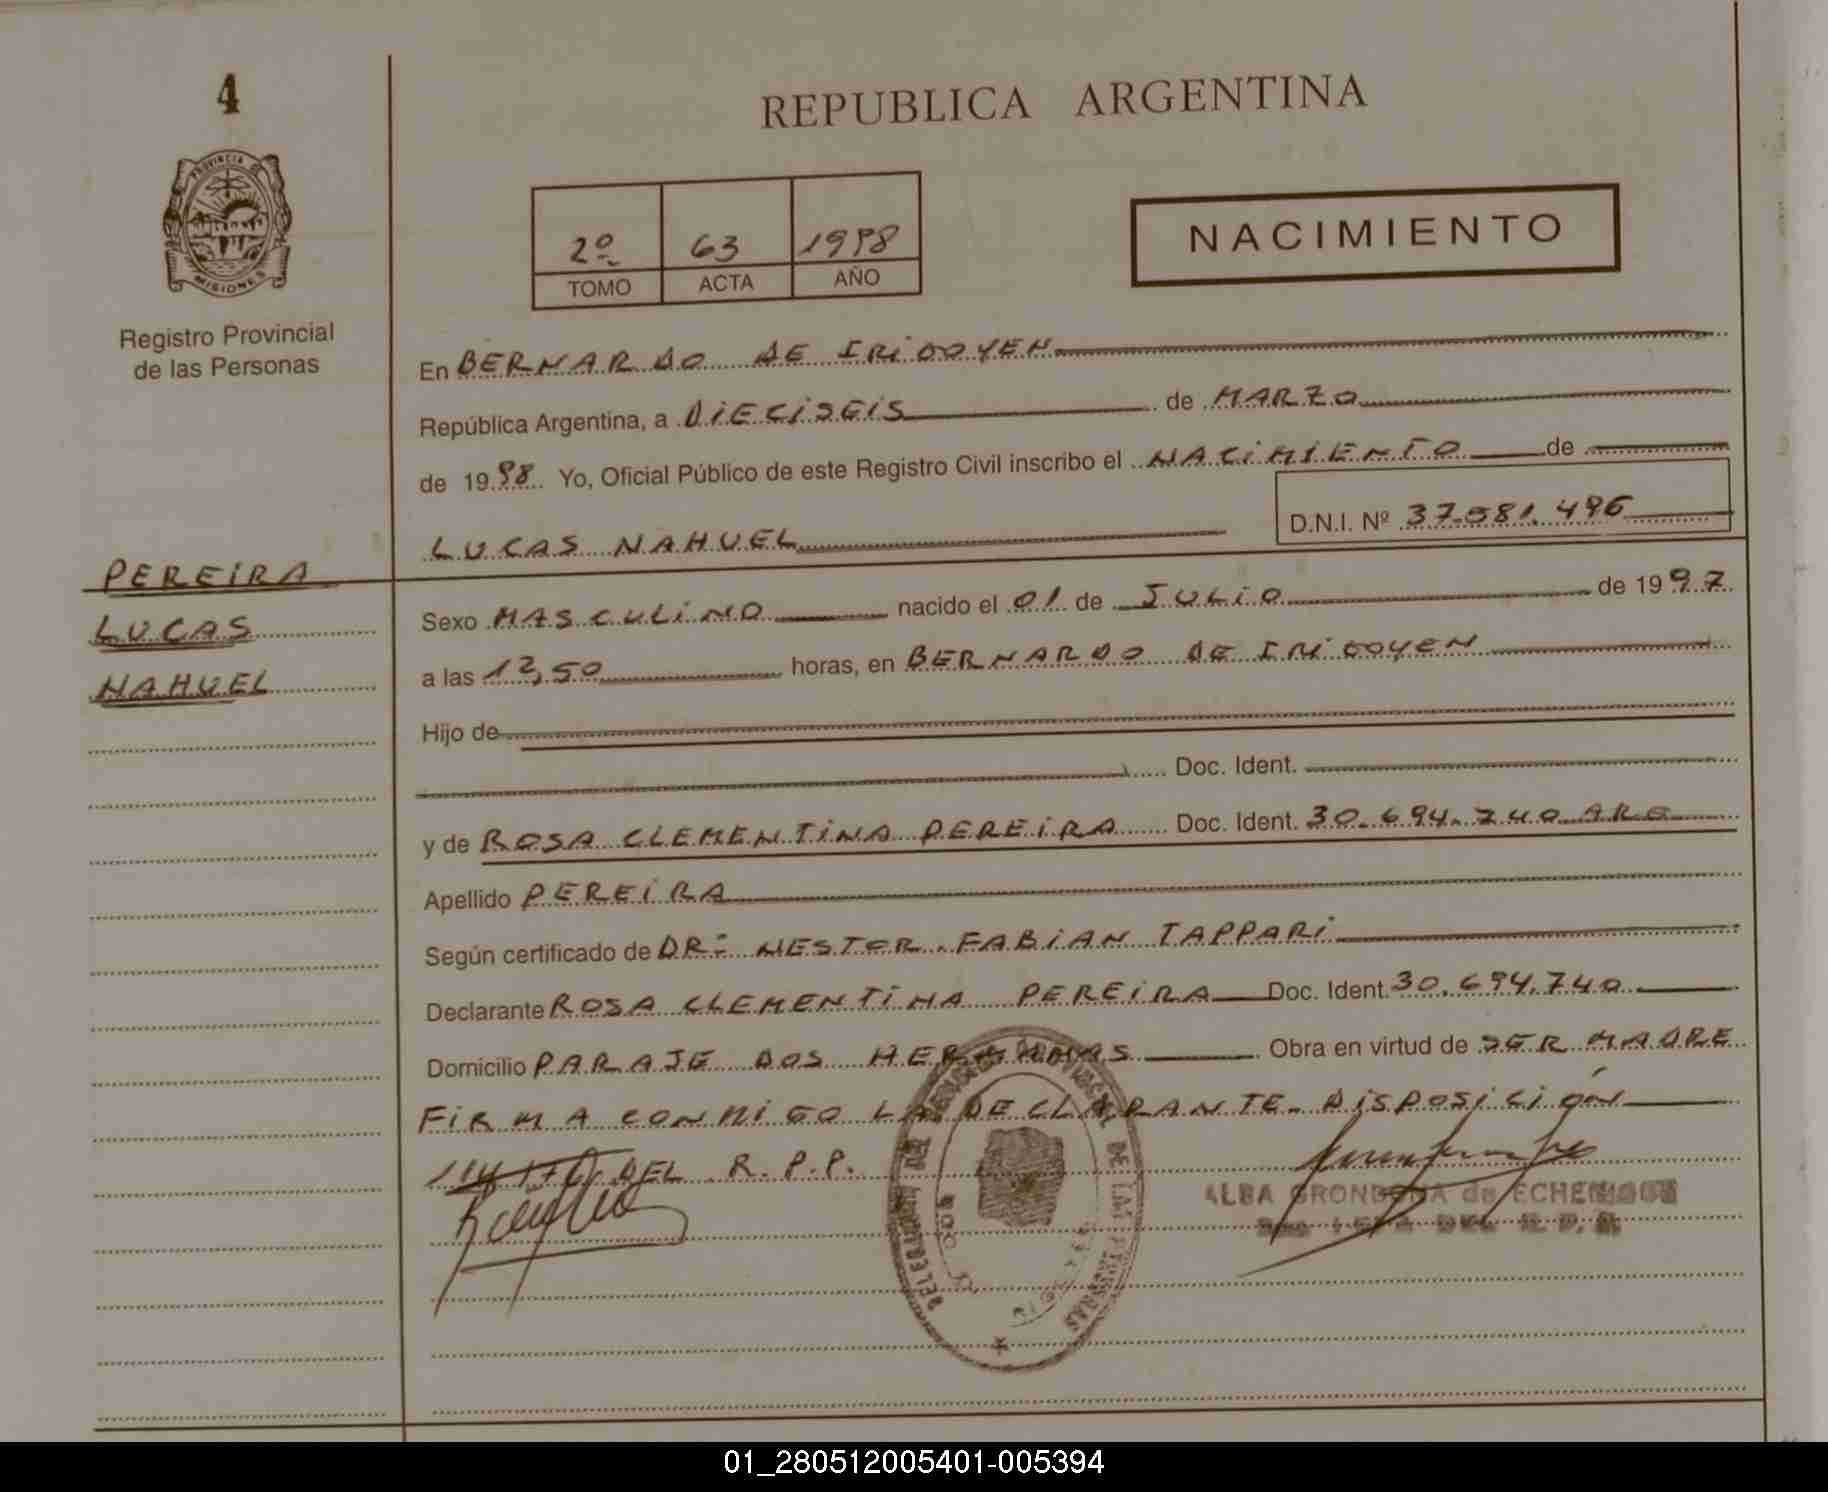 4
PROVINCIA DE
MISIONES
Registro Provincial
de las Personas
REPUBLICA ARGENTINA
2º 63 1998
TOMO ACTA AÑO
NACIMIENTO
En BERNARDO DE IRIGOYEN
República Argentina, a DIECISEIS de MARZO
de 1998 Yo, Oficial Público de este Registro Civil inscribo el NACIMIENTO de
D.N.I. Nº 37.581.496
LUCAS NAHUEL
PEREIRA
LUCAS
NAHUEL
Sexo MASCULINO nacido el 01 de JULIO de 1997
a las 12,50 horas, en BERNARDO DE IRIGOYEN
Hijo de
Doc. Ident.
y de ROSA CLEMENTINA PEREIRA Doc. Ident. 30.694.740 ARG
Apellido PEREIRA
Según certificado de DR: NESTOR FABIAN TAPPARI
Declarante ROSA CLEMENTINA PEREIRA Doc. Ident. 30.694.740
Domicilio PARAJE DOS HERMANAS Obra en virtud de SER MADRE
FIRMA CONMIGO LA DECLARANTE. DISPOSICIÓN
DEL R.P.P.
ALBA GRONDONA de ECHE
DEL R.P.P.
DE LAS PERSONAS
01_280512005401-005394